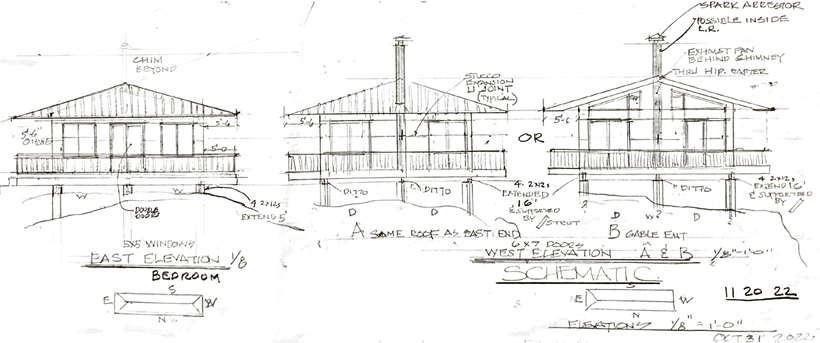 CHIM
BEYOND
5'-6"
5'-6
5'-0
W
W
DOUBLE
DOORS
4 2x12s
EXTEND 5'
5x5 WINDOWS
EAST ELEVATION 1/8
BEDROOM
S
E
W
N
STUCCO
EXPANSION
JOINT
(TYPICAL)
5'-6
DITTO
DITTO
D
D
4. 2x12s
EXTENDED
16"
& SUPPORTED
BY
STRUT
A SAME ROOF AS EAST END
OR
SPARK ARRESTOR
POSSIBLE INSIDE
L.R.
EXHAUST FAN
BEHIND CHIMNEY
THRU HIP RAFTER
5'-6
DITTO
4 2x12s
EXTEND 6'
& SUPPORTED
BY
D
W?
D
B GABLE END
6x7 DOORS
WEST ELEVATION A & B 1/8"=1'-0"
SCHEMATIC
S
E
W
N
11 20 22
ELEVATIONS 1/8" = 1'-0"
OCT 31 2022